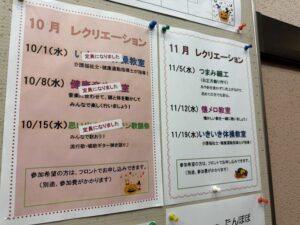 10月 レクリエーション
10/1(水) い
定員になりました
教室
介護福祉士・健康運動指導士が指導！
10/8(水) 健康
定員になりました
教室
音楽に合わせて、頭と体を動かして
みんなで楽しく行いましょう！
10/15(水) 思い
定員になりました
歌謡祭
みんなで歌おう！
流行歌・唱歌ギター弾き語り
参加希望の方は、フロントでお申し込みできます。
(別途、参加費がかかります)
11月 レクリエーション
11/5(水) つまみ細工
11/12(水) 懐メロ教室
11/19(水) いきいき体操教室
介護福祉士・健康運動指導士が指導！
参加希望の方は、フロントでお申し込みできます。
(別途、参加費がかかります)
たんぽぽ